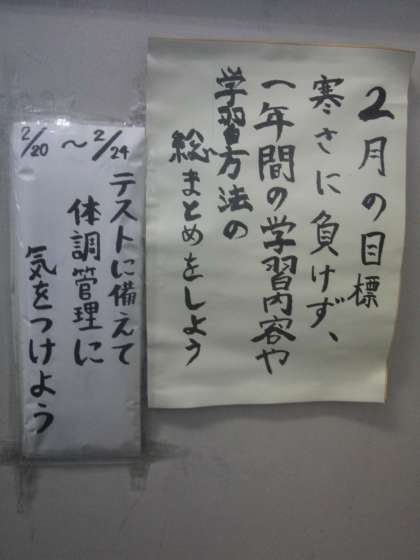 2月の目標
寒さに負けず、
一年間の学習内容や
学習方法の
総まとめをしよう
2/20 〜 2/24
テストに備えて
体調管理に
気をつけよう